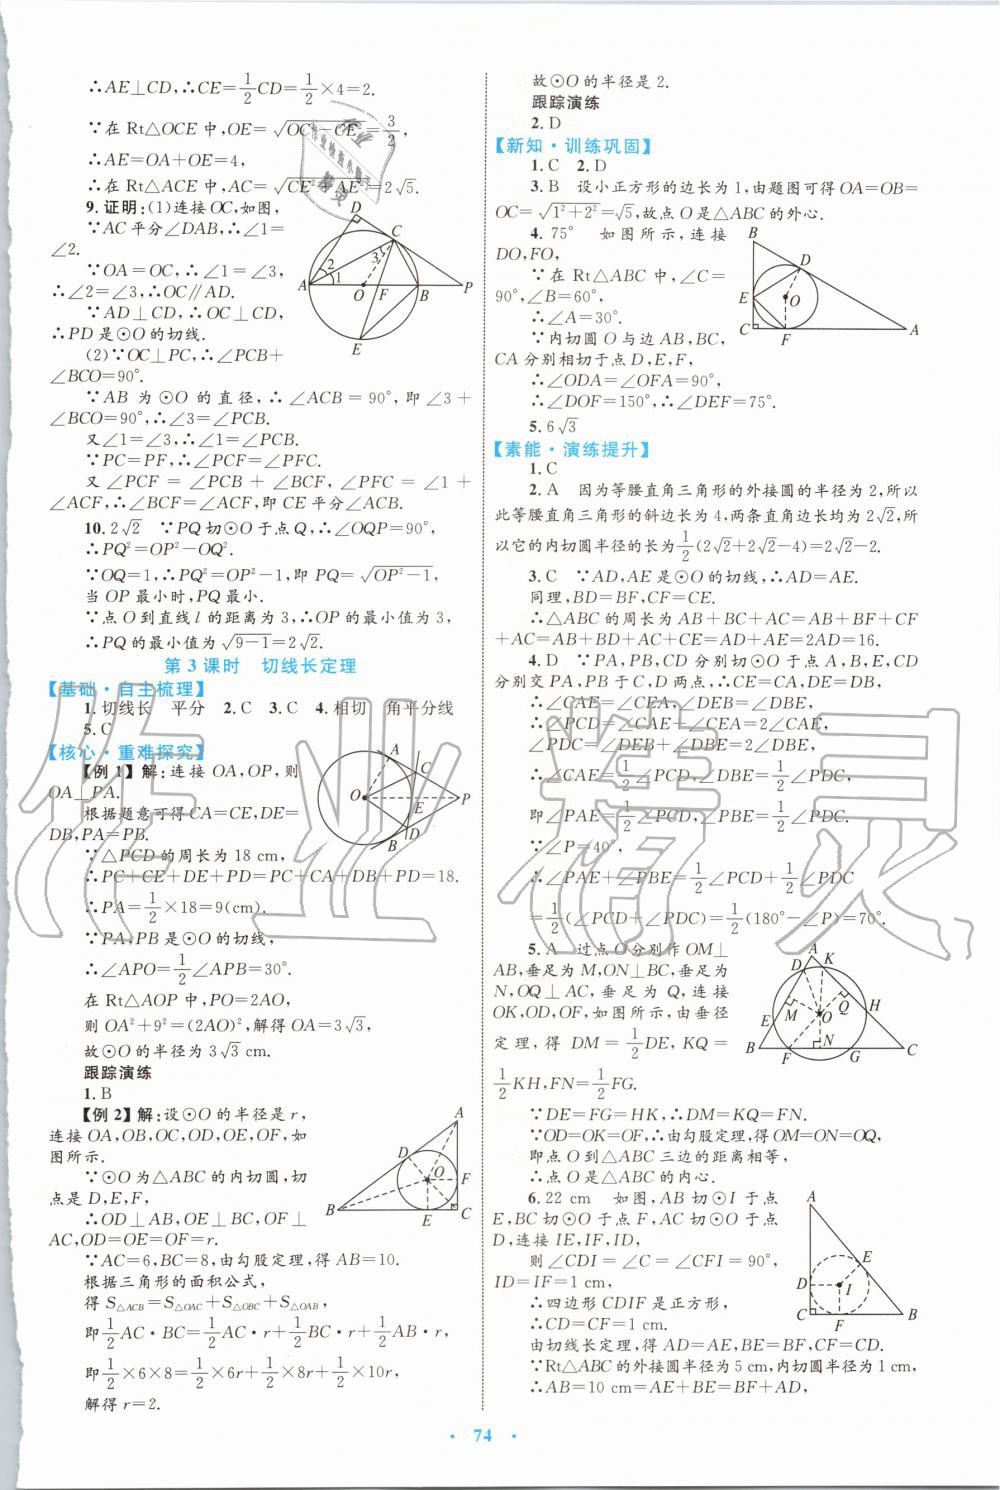 ∴AE⊥CD,∴CE=1/2CD=1/2×4=2.
∵在 Rt△OCE 中,OE=√(OC²−CE²)=3/2,
∴AE=OA+OE=4,
∴在 Rt△ACE 中,AC=√(CE²+AE²)=2√5.
9.证明:(1)连接OC,如图,
∵AC平分∠DAB,∴∠1=
∠2.
∵OA=OC,∴∠1=∠3,
∴∠2=∠3,∴OC∥AD.
∵AD⊥CD,∴OC⊥CD,
∴PD是⊙O的切线.
(2)∵OC⊥PC,∴∠PCB+
∠BCO=90°.
∵AB 为⊙O 的直径,∴∠ACB=90°,即∠3+
∠BCO=90°,∴∠3=∠PCB.
又∠1=∠3,∴∠1=∠PCB.
∵PC=PF,∴∠PCF=∠PFC.
又∠PCF=∠PCB+∠BCF,∠PFC=∠1+
∠ACF,∴∠BCF=∠ACF,即CE平分∠ACB.
10.2√2 ∵PQ切⊙O于点Q,∴∠OQP=90°,
∴PQ²=OP²−OQ².
∵OQ=1,∴PQ²=OP²−1,即 PQ=√(OP²−1),
当 OP 最小时,PQ最小.
∵点O到直线l的距离为3,∴OP的最小值为3,
∴PQ的最小值为√(9−1)=2√2.
第3课时 切线长定理
【基础·自主梳理】
1.切线长 平分 2.C 3.C 4.相切 角平分线
5.C
【核心·重难探究】
【例1】解:连接 OA,OP,则
OA⊥PA.
根据题意可得CA=CE,DE=
DB,PA=PB.
∵△PCD的周长为18 cm,
∴PC+CE+DE+PD=PC+CA+DB+PD=18.
∴PA=1/2×18=9(cm).
∵PA,PB是⊙O的切线,
∴∠APO=1/2∠APB=30°.
在 Rt△AOP中,PO=2AO,
则OA²+9²=(2AO)²,解得OA=3√3,
故⊙O的半径为3√3 cm.
跟踪演练
1.B
【例2】解:设⊙O的半径是r,
连接OA,OB,OC,OD,OE,OF,如
图所示.
∵⊙O为△ABC的内切圆,切
点是D,E,F,
∴OD⊥AB,OE⊥BC,OF⊥
AC,OD=OE=OF=r.
∵AC=6,BC=8,由勾股定理,得AB=10.
根据三角形的面积公式,
得 S△ACB=S△OAC+S△OBC+S△OAB,
即1/2AC·BC=1/2AC·r+1/2BC·r+1/2AB·r,
即1/2×6×8=1/2×6r+1/2×8r+1/2×10r,
解得r=2.
故⊙O的半径是2.
跟踪演练
2.D
【新知·训练巩固】
1.C 2.D
3.B 设小正方形的边长为1,由题图可得OA=OB=
OC=√(1²+2²)=√5,故点O是△ABC的外心.
4.75° 如图所示,连接
DO,FO,
∵在 Rt△ABC 中,∠C=
90°,∠B=60°,
∴∠A=30°.
∵内切圆O与边AB,BC,
CA分别相切于点D,E,F,
∴∠ODA=∠OFA=90°,
∴∠DOF=150°,∴∠DEF=75°.
5.6√3
【素能·演练提升】
1.C
2.A 因为等腰直角三角形的外接圆的半径为2,所以
此等腰直角三角形的斜边长为4,两条直角边长均为2√2,所
以它的内切圆半径的长为1/2(2√2+2√2−4)=2√2−2.
3.C ∵AD,AE是⊙O的切线,∴AD=AE.
同理,BD=BF,CF=CE.
∴△ABC的周长为AB+BC+AC=AB+BF+CF
+AC=AB+BD+CE+AC=AD+AE=2AD=16.
4.D ∵PA,PB,CD 分别切⊙O于点A,B,E,CD
分别交PA,PB于C,D两点,∴CE=CA,DE=DB,
∴∠CAE=∠CEA,∠DEB=∠DBE,
∴∠PCD=∠CAE+∠CEA=2∠CAE,
∠PDC=∠DEB+∠DBE=2∠DBE,
∴∠CAE=1/2∠PCD,∠DBE=1/2∠PDC,
即∠PAE=1/2∠PCD,∠PBE=1/2∠PDC.
∵∠P=40°,
∴∠PAE+∠PBE=1/2∠PCD+1/2∠PDC
=1/2(∠PCD+∠PDC)=1/2(180°−∠P)=70°.
5.A 过点O分别作OM⊥
AB,垂足为M,ON⊥BC,垂足为
N,OQ⊥AC,垂足为Q,连接
OK,OD,OF,如图所示,由垂径
定理,得 DM=1/2DE,KQ=
1/2KH,FN=1/2FG.
∵DE=FG=HK,∴DM=KQ=FN.
∵OD=OK=OF,∴由勾股定理,得OM=ON=OQ,
即点O到△ABC三边的距离相等,
∴点O是△ABC的内心.
6.22 cm 如图,AB切⊙I于点
E,BC切⊙O于点F,AC切⊙O于点
D,连接IE,IF,ID,
则∠CDI=∠C=∠CFI=90°,
ID=IF=1 cm,
∴四边形CDIF是正方形,
∴CD=CF=1 cm.
由切线长定理,得AD=AE,BE=BF,CF=CD.
∵Rt△ABC的外接圆半径为5 cm,内切圆半径为1 cm,
∴AB=10 cm=AE+BE=BF+AD,
· 74 ·
作业精灵